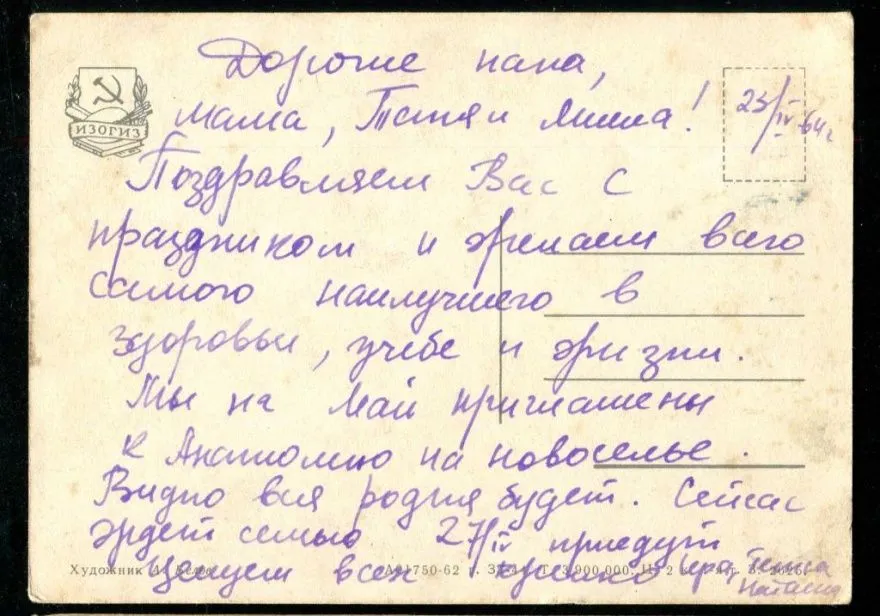 Дорогие папа,
мама, Таня и Миша!
23/IV-64г
ИЗОГИЗ
Поздравляем Вас с
праздником и желаем всего
самого наилучшего в
здоровьи, учебе и жизни.
Мы на Май приглашены
к Анатолию на новоселье.
Видно вся родня будет. Сейчас
ждет семью 27/IV приедут
Целуем всех
Художник А.